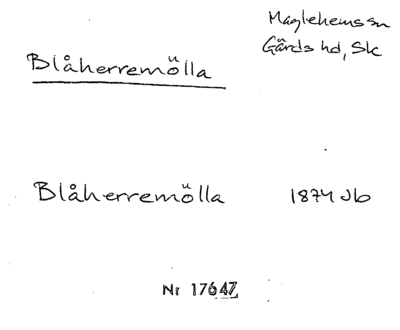 Maglehems sn
Gärds hd, Sk
Blåherremölla
Blåherremölla 1874 Jb
Nr 17647